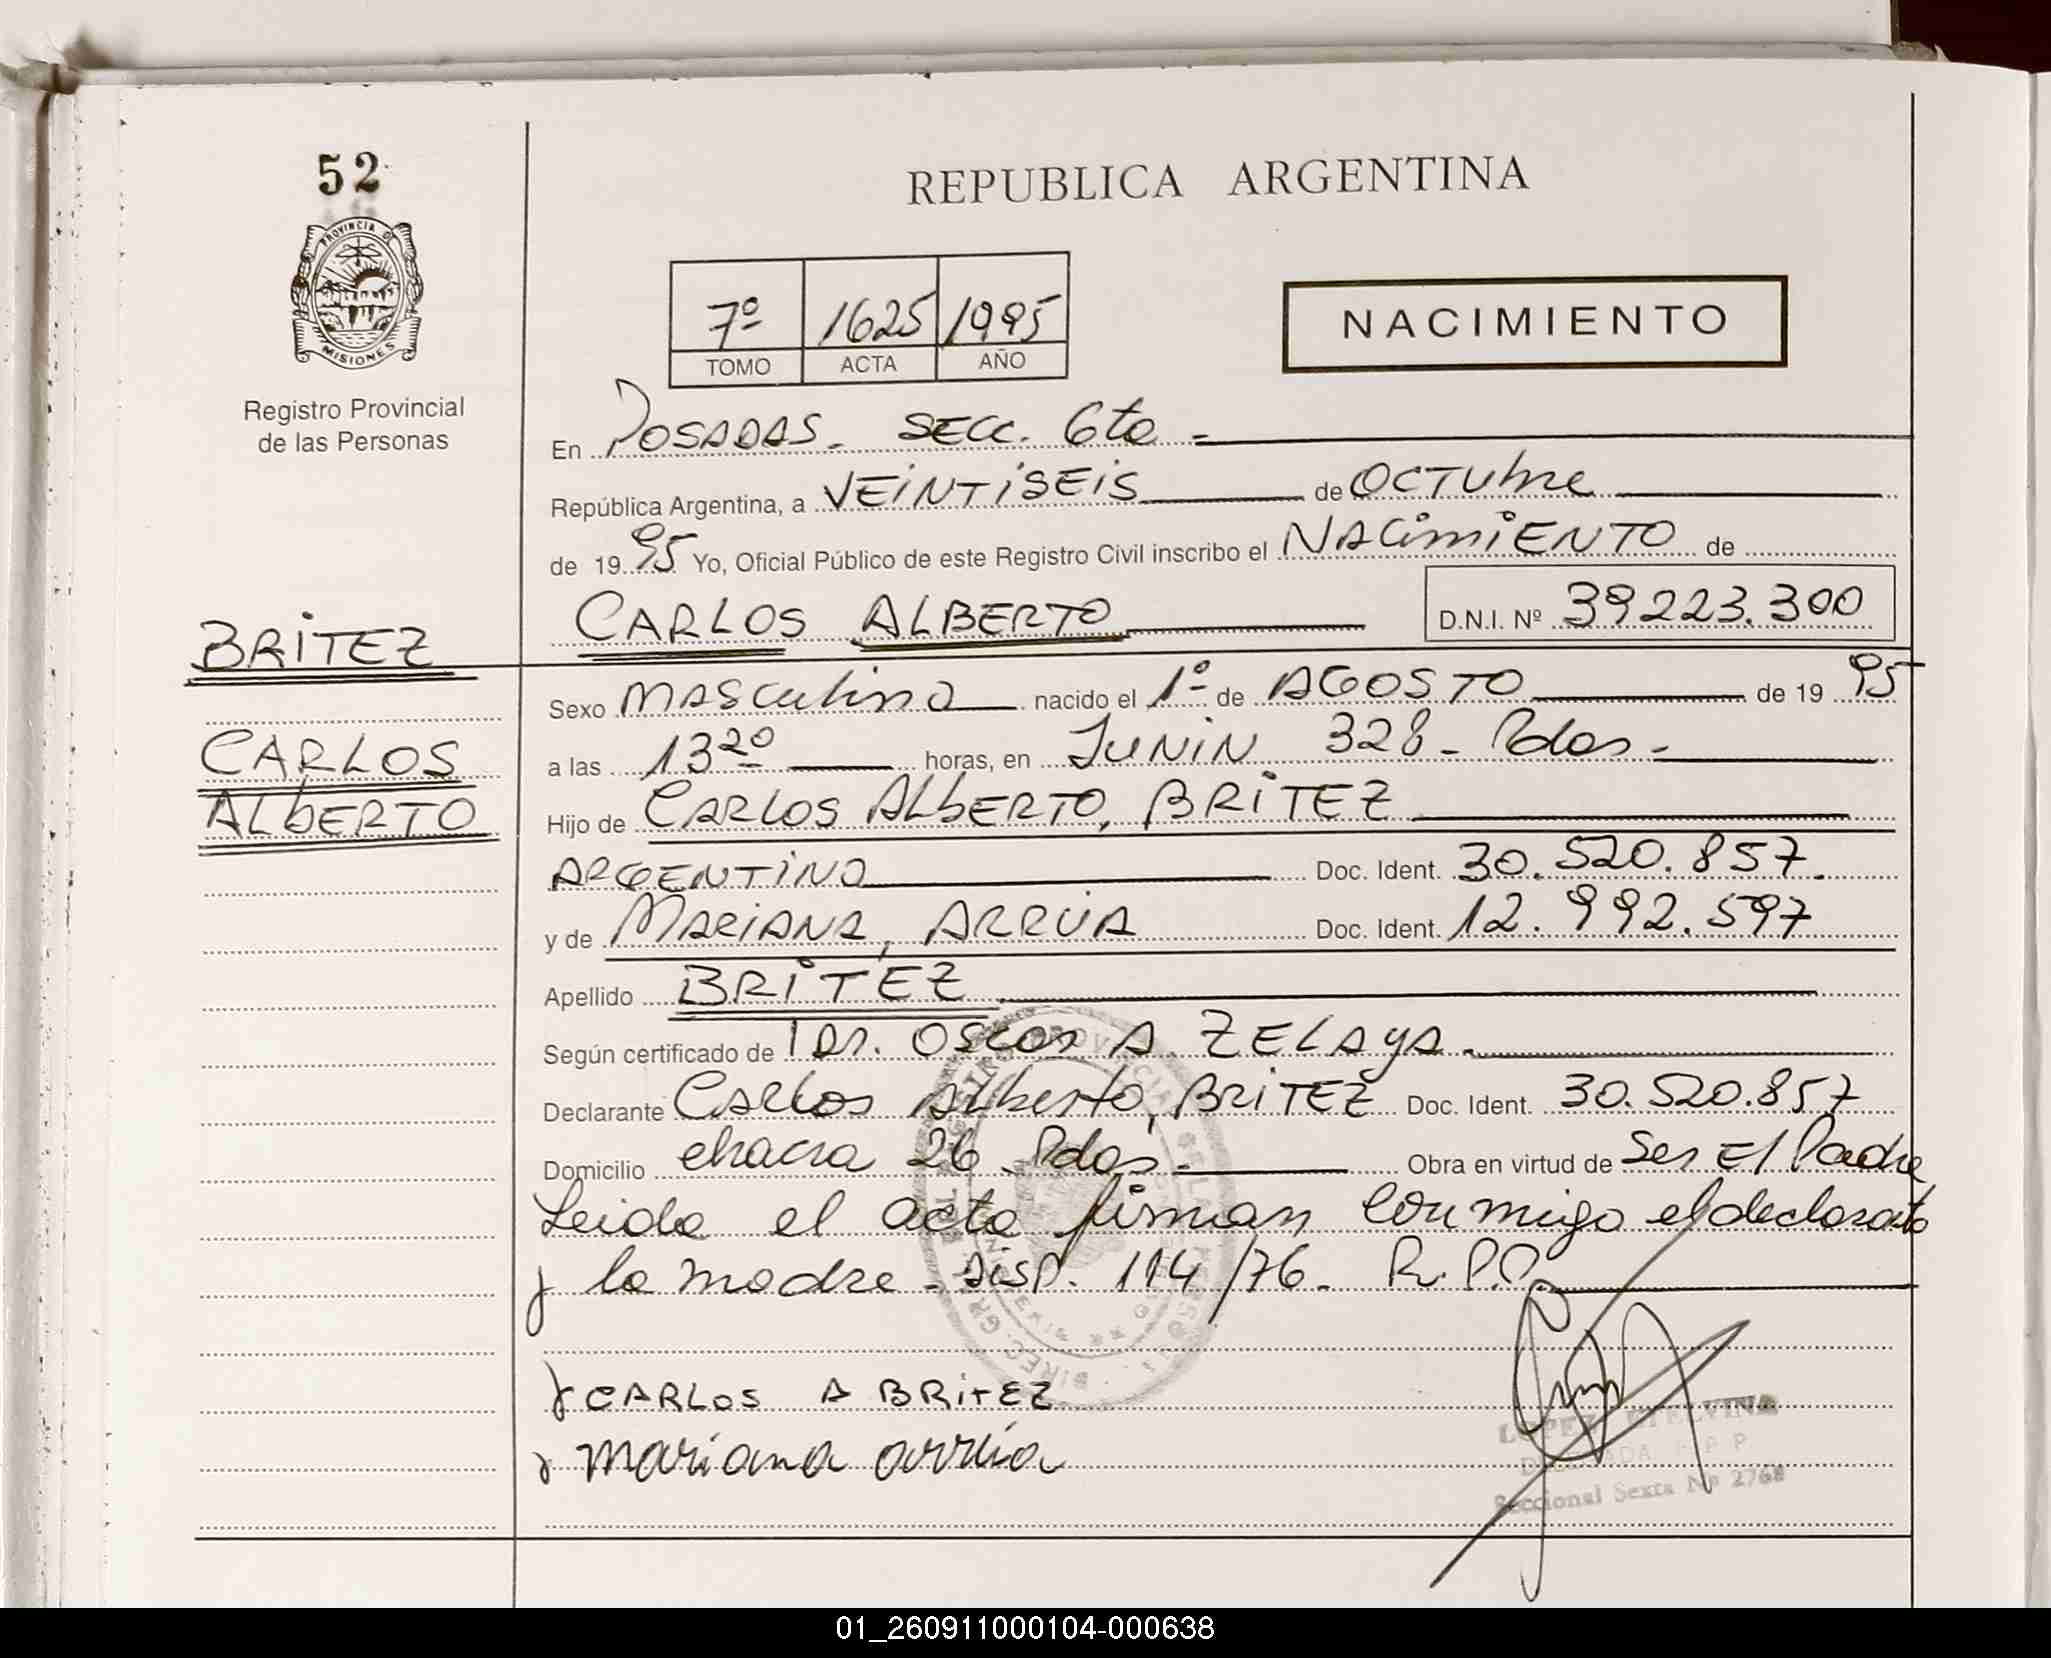 52
PROVINCIA D
MISIONES
Registro Provincial
de las Personas
REPUBLICA ARGENTINA
7º 1625 1995
TOMO ACTA AÑO
NACIMIENTO
En POSADAS. SECC. 6ta -
República Argentina, a VEINTISEIS de OCTUbre
de 1995 Yo, Oficial Público de este Registro Civil inscribo el NACimiENTO de
CARLOS ALBERTO D.N.I. Nº 39223.300
BRITEZ
CARLOS
ALbERTO
Sexo MASCulino nacido el 1º de AGOSTO de 1995
a las 13 20 horas, en JUNIN 328 - Pdas -
Hijo de CARLOS ALbERTO, BRITEZ
ARGENTINO Doc. Ident. 30.520.857.
y de MARIANA, ARRÚA Doc. Ident. 12.992.597
Apellido BRITEZ
Según certificado de Dr. Oscar A ZELAyA.
Declarante Carlos Alberto, BRITEZ Doc. Ident. 30.520.857
Domicilio chacra 26 Pdas. Obra en virtud de Ser El Padre
Leida el acta firman conmigo el declarante
y la madre - Disp. 114/76 - R.P.P.
CARLOS A BRITEZ
mariana arrúa
LOPEZ ETELVINA
Seccional Sexta Nº 2768
01_260911000104-000638